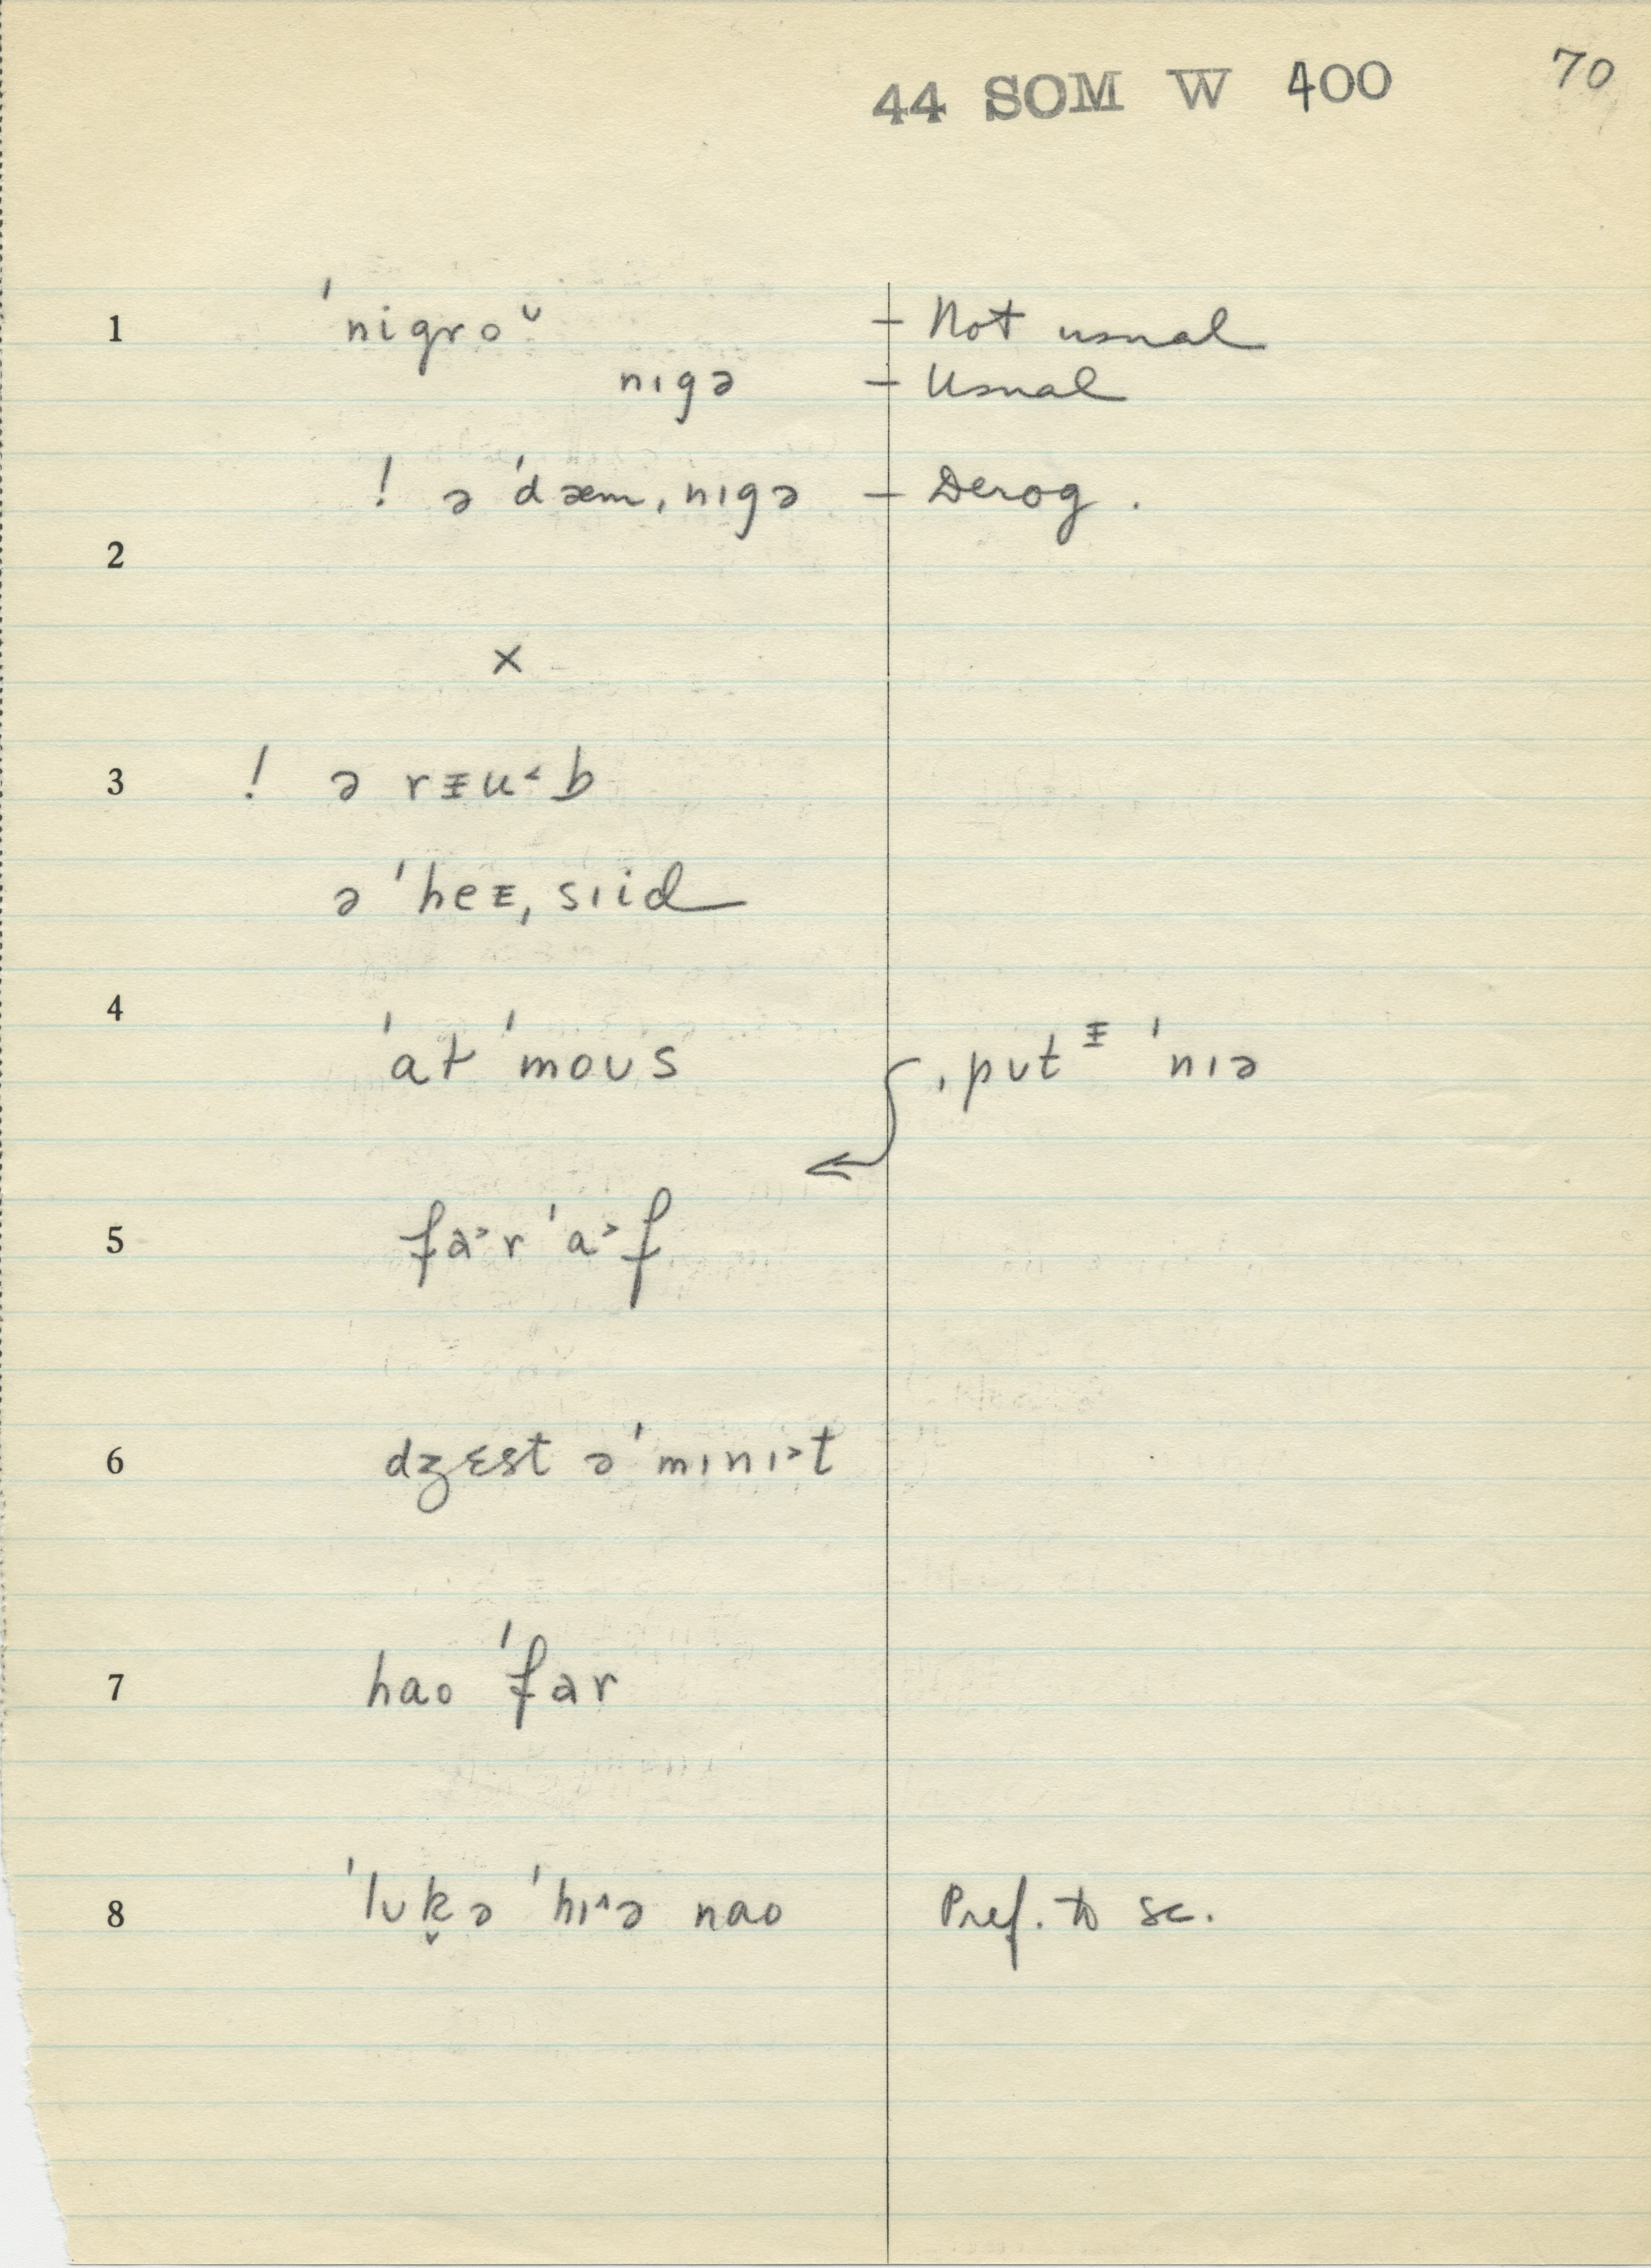 44 SOM W 400 70
1 ˈnigroᶷ – Not usual
nɪgə – Usual
! ə ˈdæmˌnɪgə – Derog.
2
×
3 ! ə rᵻu˂b
ə ˈheᵻˌsɪid
4 ˈat ˈmoʊs ˌpʊtᵻ ˈnɪə
5 fa˃r ˈa˃f
6 dʒɛst ə ˈmɪnɪ˃t
7 hao ˈfar
8 ˈlʊk̬ə ˈhɪ˄ə nao Pref. to sc.